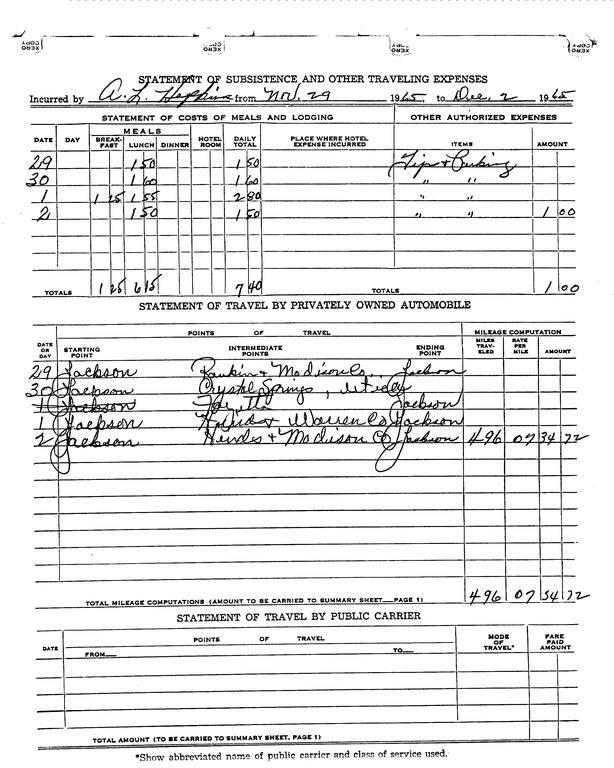 XERO COPY XERO COPY XERO COPY XERO COPY
STATEMENT OF SUBSISTENCE AND OTHER TRAVELING EXPENSES
Incurred by A. L. Hopkins from Nov. 29 1965, to Dec. 2 1965
STATEMENT OF COSTS OF MEALS AND LODGING OTHER AUTHORIZED EXPENSES
DATE DAY MEALS BREAK-FAST LUNCH DINNER HOTEL ROOM DAILY TOTAL PLACE WHERE HOTEL EXPENSE INCURRED ITEMS AMOUNT
29 1 50 1 50 Tips & Parking
30 1 60 1 60 " "
1 1 25 1 55 2 80 " "
2 1 50 1 50 " " 1 00
TOTALS 1 25 6 15 7 40 TOTALS 1 00
STATEMENT OF TRAVEL BY PRIVATELY OWNED AUTOMOBILE
POINTS OF TRAVEL MILEAGE COMPUTATION
DATE OR DAY STARTING POINT INTERMEDIATE POINTS ENDING POINT MILES TRAV-ELED RATE PER MILE AMOUNT
29 Jackson Rankin & Madison Co. Jackson
30 Jackson Crystal Springs,
1 Jackson Jackson
1 Jackson & Warren Co Jackson
2 Jackson Hinds & Madison Co Jackson 496 07 34 72
TOTAL MILEAGE COMPUTATIONS (AMOUNT TO BE CARRIED TO SUMMARY SHEET—PAGE 1) 496 07 34 72
STATEMENT OF TRAVEL BY PUBLIC CARRIER
DATE POINTS OF TRAVEL MODE OF TRAVEL* FARE PAID AMOUNT
FROM— TO—
TOTAL AMOUNT (TO BE CARRIED TO SUMMARY SHEET, PAGE 1)
*Show abbreviated name of public carrier and class of service used.